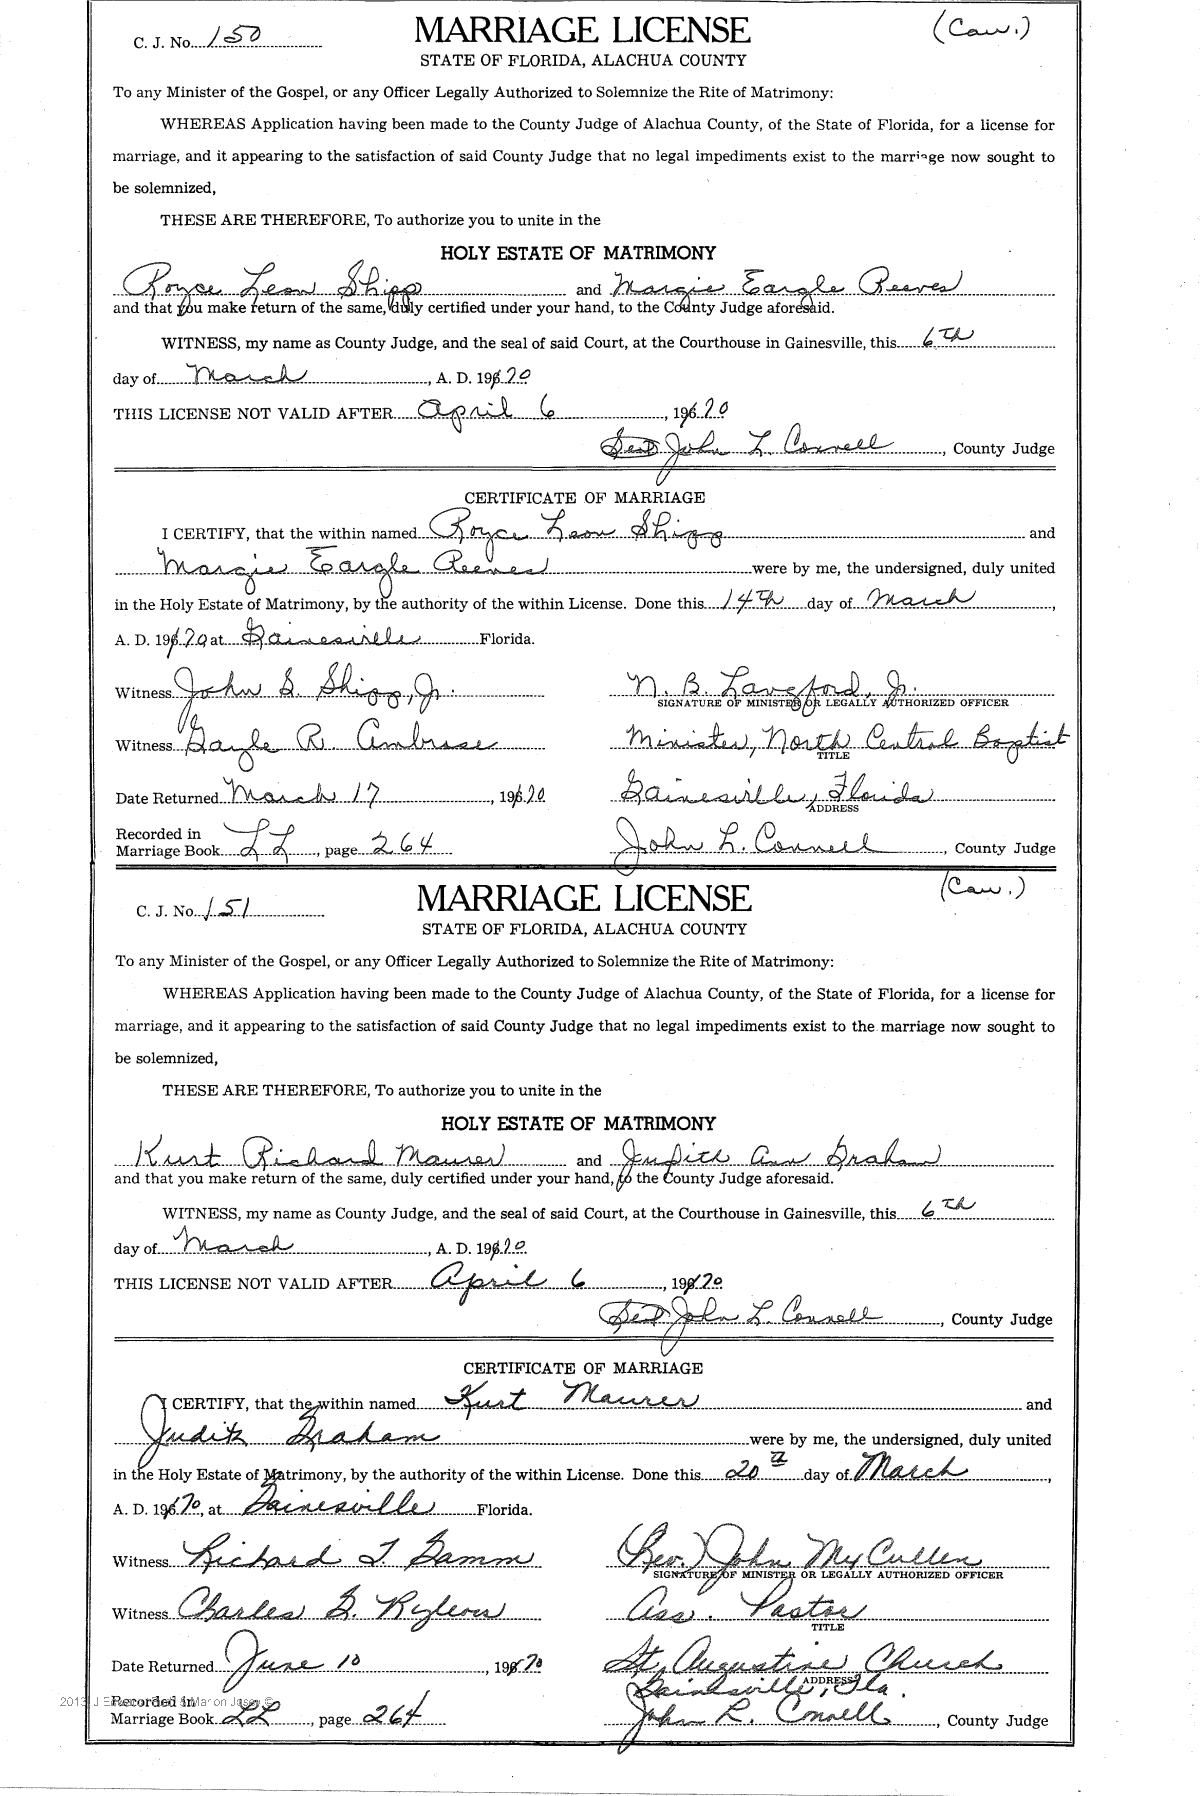 C. J. No. 150 MARRIAGE LICENSE (Cau.)
STATE OF FLORIDA, ALACHUA COUNTY
To any Minister of the Gospel, or any Officer Legally Authorized to Solemnize the Rite of Matrimony:
WHEREAS Application having been made to the County Judge of Alachua County, of the State of Florida, for a license for
marriage, and it appearing to the satisfaction of said County Judge that no legal impediments exist to the marriage now sought to
be solemnized,
THESE ARE THEREFORE, To authorize you to unite in the
HOLY ESTATE OF MATRIMONY
Royce Leon Shipp and Margie Eargle Reeves
and that you make return of the same, duly certified under your hand, to the County Judge aforesaid.
WITNESS, my name as County Judge, and the seal of said Court, at the Courthouse in Gainesville, this 6th
day of March, A. D. 19670
THIS LICENSE NOT VALID AFTER April 6, 19670
Seal John L. Connell, County Judge
CERTIFICATE OF MARRIAGE
I CERTIFY, that the within named Royce Leon Shipp and
Margie Eargle Reeves were by me, the undersigned, duly united
in the Holy Estate of Matrimony, by the authority of the within License. Done this 14th day of March,
A. D. 19670 at Gainesville Florida.
Witness John S. Shipp, Jr. N. B. Langford, Jr.
SIGNATURE OF MINISTER OR LEGALLY AUTHORIZED OFFICER
Witness Gayle R. Ambrose Minister, North Central Baptist
TITLE
Date Returned March 17, 19670 Gainesville, Florida
ADDRESS
Recorded in
Marriage Book LL, page 264 John L. Connell, County Judge
C. J. No. 151 MARRIAGE LICENSE (Cau.)
STATE OF FLORIDA, ALACHUA COUNTY
To any Minister of the Gospel, or any Officer Legally Authorized to Solemnize the Rite of Matrimony:
WHEREAS Application having been made to the County Judge of Alachua County, of the State of Florida, for a license for
marriage, and it appearing to the satisfaction of said County Judge that no legal impediments exist to the marriage now sought to
be solemnized,
THESE ARE THEREFORE, To authorize you to unite in the
HOLY ESTATE OF MATRIMONY
Kurt Richard Maurer and Judith Ann Graham
and that you make return of the same, duly certified under your hand, to the County Judge aforesaid.
WITNESS, my name as County Judge, and the seal of said Court, at the Courthouse in Gainesville, this 6th
day of March, A. D. 19670
THIS LICENSE NOT VALID AFTER April 6, 19670
Seal John L. Connell, County Judge
CERTIFICATE OF MARRIAGE
I CERTIFY, that the within named Kurt Maurer and
Judith Graham were by me, the undersigned, duly united
in the Holy Estate of Matrimony, by the authority of the within License. Done this 20th day of March,
A. D. 19670, at Gainesville Florida.
Witness Richard T. Gamm (Rev.) John McCullen
SIGNATURE OF MINISTER OR LEGALLY AUTHORIZED OFFICER
Witness Charles G. Ass. Pastor
TITLE
Date Returned June 10, 19670 St. Augustine Church
ADDRESS
Gainesville, Fla.
Recorded in
Marriage Book LL, page 264 John L. Connell, County Judge